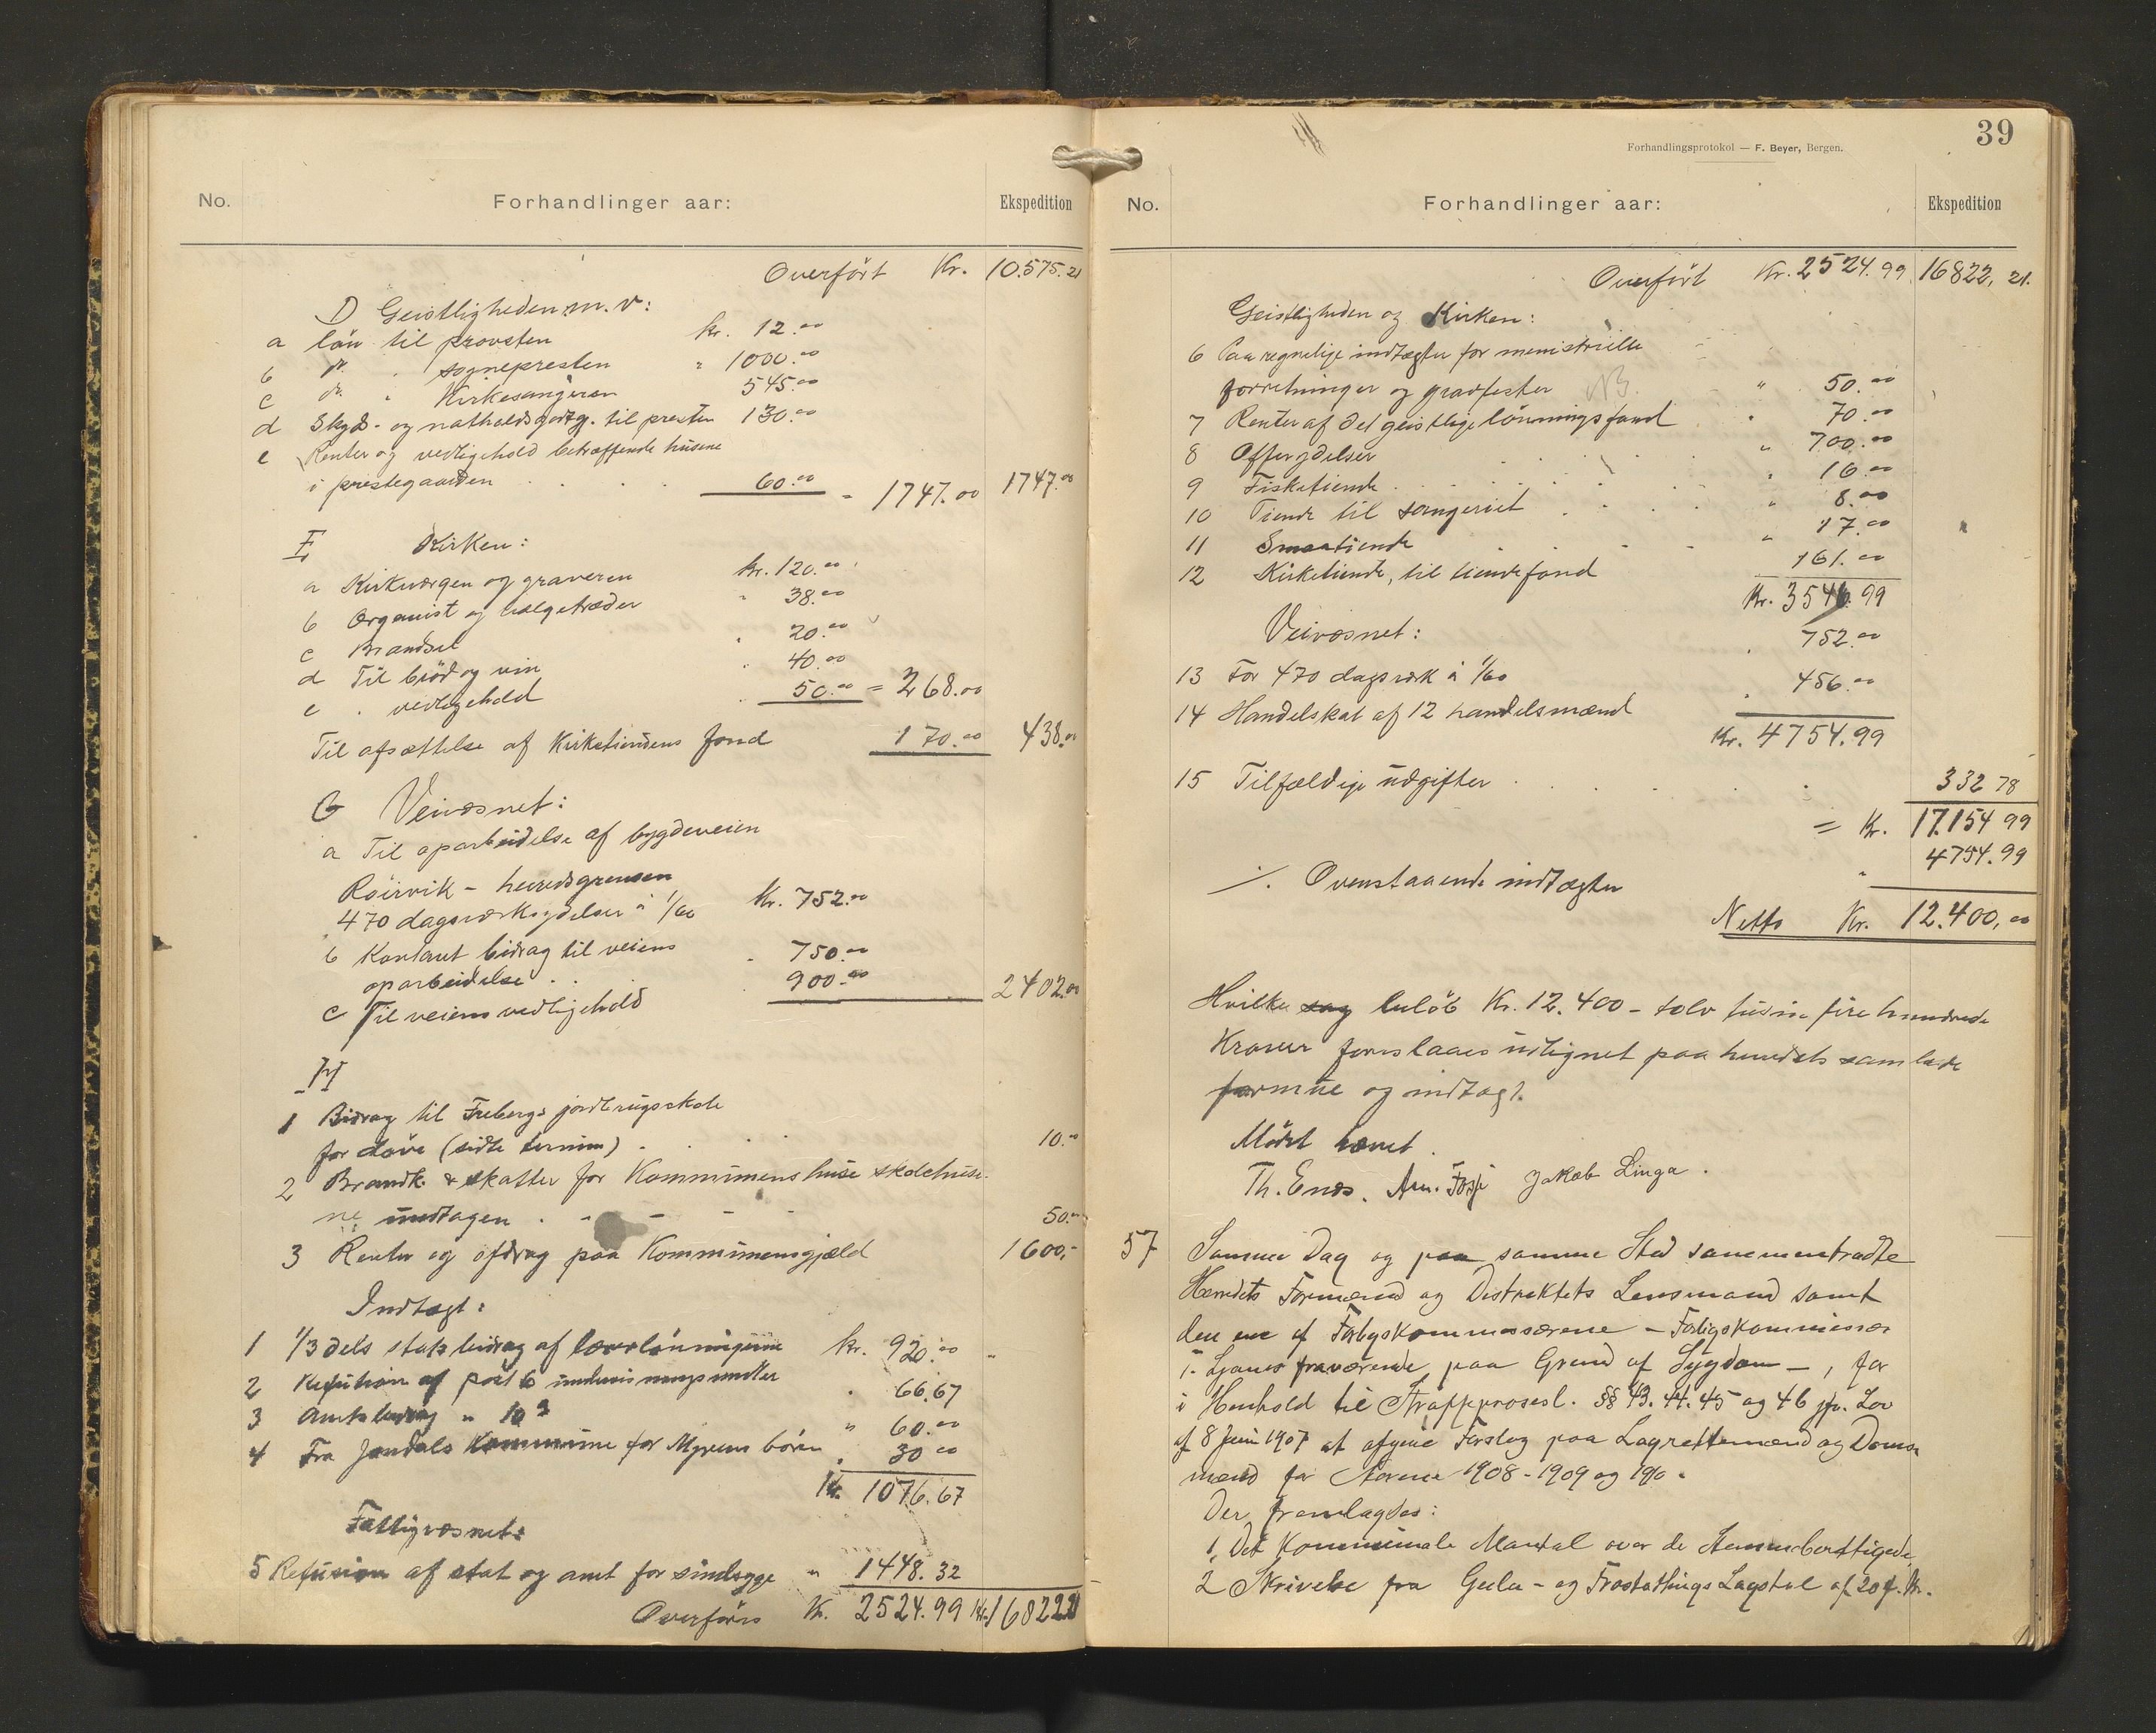 No. Forhandlinger aar: Ekspedition
Overført Kr. 10.575.21
D Geistligheden m.v:
a løn til provsten kr. 12.00
b do. " sognepresten " 1000.00
c do. " Kirkesangeren 545.00
d Skyds- og natholdsgodtg. til presten 130.00
e Renter og vedligehold betræffende husene
i prestegaarden 60.00 = 1747.00 1747.00
F Kirken:
a Kirkværgen og graveren kr. 120.00
b Organist og bælgetræder " 38.00
c Brændsel " 20.00
d Til brød og vin " 40.00
e " vedligehold " 50.00 = 268.00
Til afsættelse af Kirketiendens fond 170.00 438.00
G Veivæsnet:
a Til oparbeidelse af bygdeveien
Røirvik - herredsgrensen
470 dagsværksydelser à 1/60 Kr. 752.00
b Kontant bidrag til veiens
oparbeidelse " 750.00
c Til veiens vedligehold " 900.00 2402.00
H
1 Bidrag til jordbrugsskole
for døve (sidte termin) 10.00
2 Brandk. & skatter for Kommunens huse skolehuse-
ne undtagen 50.00
3 Renter og afdrag paa Kommunensgjæld 1600,-
Indtægt:
1 1/3 dels statsbidrag af lærerlønningerne kr. 920.00
2 Refusion af post 6 undervisningsmidler " 66.67
3 Amtsbidrag " 10 " 60.00
4 Fra Jondals Kommune for Myrens børn " 30.00
Kr. 1076.67
Fattigvæsnet:
5 Refusion af stat og amt for sindsyge " 1448.32
Overføres Kr. 2524.99 Kr. 16822.21
39
Forhandlingsprotokol — F. Beyer, Bergen.
No. Forhandlinger aar: Ekspedition
Overført Kr. 2524.99 16822,21.
Geistligheden og Kirken:
6 Paaregnelige indtægter for ministrielle
forretninger og gravfester NB. " 50.00
7 Renter af det geistlige lønningsfond " 70.00
8 Offerydelser " 700.00
9 Fisketiende " 16.00
10 Tiende til sangeriet " 8.00
11 Smaatiende " 17.00
12 Kirketiende, til tiendefond 161.00
Kr. 3546.99
Veivæsnet:
13 For 470 dagsverk à 1/60 " 752.00
14 Handelskat af 12 handelsmænd " 456.00
Kr. 4754.99
15 Tilfældige udgifter 332 78
= Kr. 17.154 99
./. Ovenstaaende indtægter " 4754.99
Netto Kr. 12.400,00
Hvilke sag beløb Kr. 12.400 - tolv tusine fire hundrede
Kroner foreslaaes udlignet paa herredets samlede
formue og indtægt.
Mødet hævet.
Th. Enes. Arn. Fosse Jakob Linga.
57 Samme Dag og paa samme Sted sammentraadte
Herredets Formænd og Distriktets Lensmand samt
den ene af Forligskommissærerne - Forligskommissær
T. Ljones fraværende paa Grund af Sygdom -, for
i Henhold til Straffprosesl. §§ 43. 44. 45 og 46 jfr. Lov
af 8 Juni 1907 at afgive Forslag paa Lagrettemænd og Doms-
mænd for Aarene 1908 - 1909 og 1910.
Der fremlagdes:
1, Det Kommunale Mantal over de Stemmeberettigede,
2 Skrivelse fra Gula- og Frostathings Lagstol af 20 f. M.